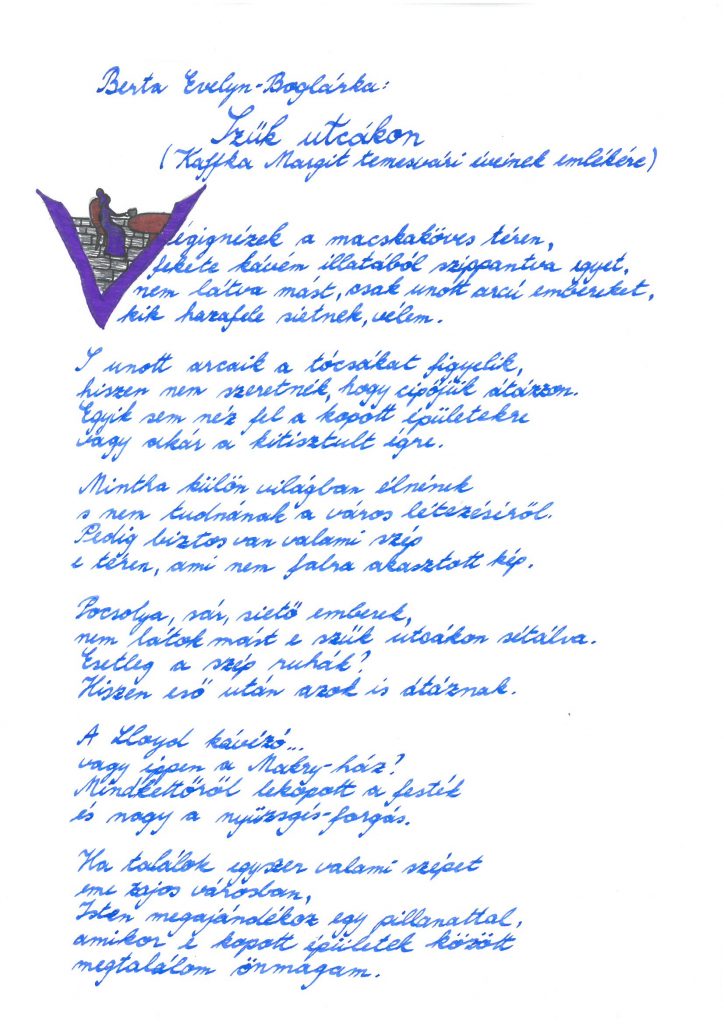 Berta Evelyn-Boglárka:
Szűk utcákon
(Kaffka Margit temesvári éveinek emlékére)
Végignézek a macskaköves téren,
fekete kávém illatából szippantva egyet,
nem látva mást, csak unott arcú embereket,
kik hazafele sietnek, vélem.
S unott arcaik a tócsákat figyelik,
hiszen nem szeretnék, hogy cipőjük átázzon.
Egyik sem néz fel a kopott épületekre
vagy akár a kitisztult égre.
Mintha külön világban élnének
s nem tudnának a város létezéséről.
Pedig biztos van valami szép
e téren, ami nem falra akasztott kép.
Pocsolya, sár, siető emberek,
nem látok mást e szűk utcákon sétálva.
Esetleg a szép ruhák?
Hiszen eső után azok is átáznak.
A Lloyd kávézó...
vagy éppen a Makry-ház?
Mindkettőről lekopott a festék
és nagy a nyüzsgés-forgás.
Ha találok egyszer valami szépet
eme zajos városban,
Isten megajándékoz egy pillanattal,
amikor e kopott épületek között
megtalálom önmagam.